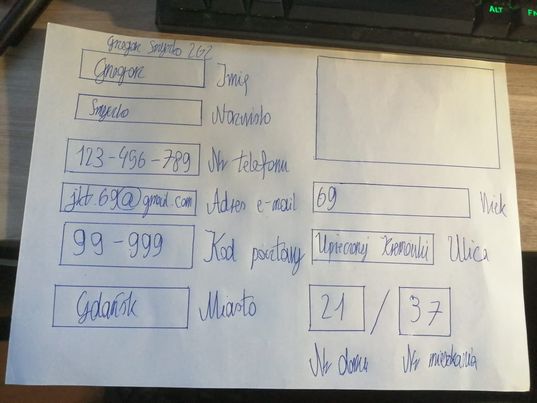 Grzegorz Smyczko 2G2
Grzegorz Imię
Smyczko Nazwisko
123-456-789 Nr telefonu
jkt.69@gmail.com Adres e-mail 69 Wiek
99-999 Kod pocztowy Upieczonej Kremówki Ulica
Gdańsk Miasto 21 / 37
Nr domu Nr mieszkania
ALT